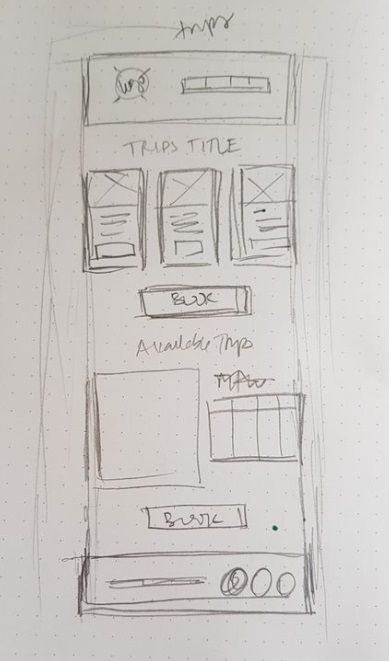 trips
TRIPS TITLE
BOOK
Available Trips
BOOK